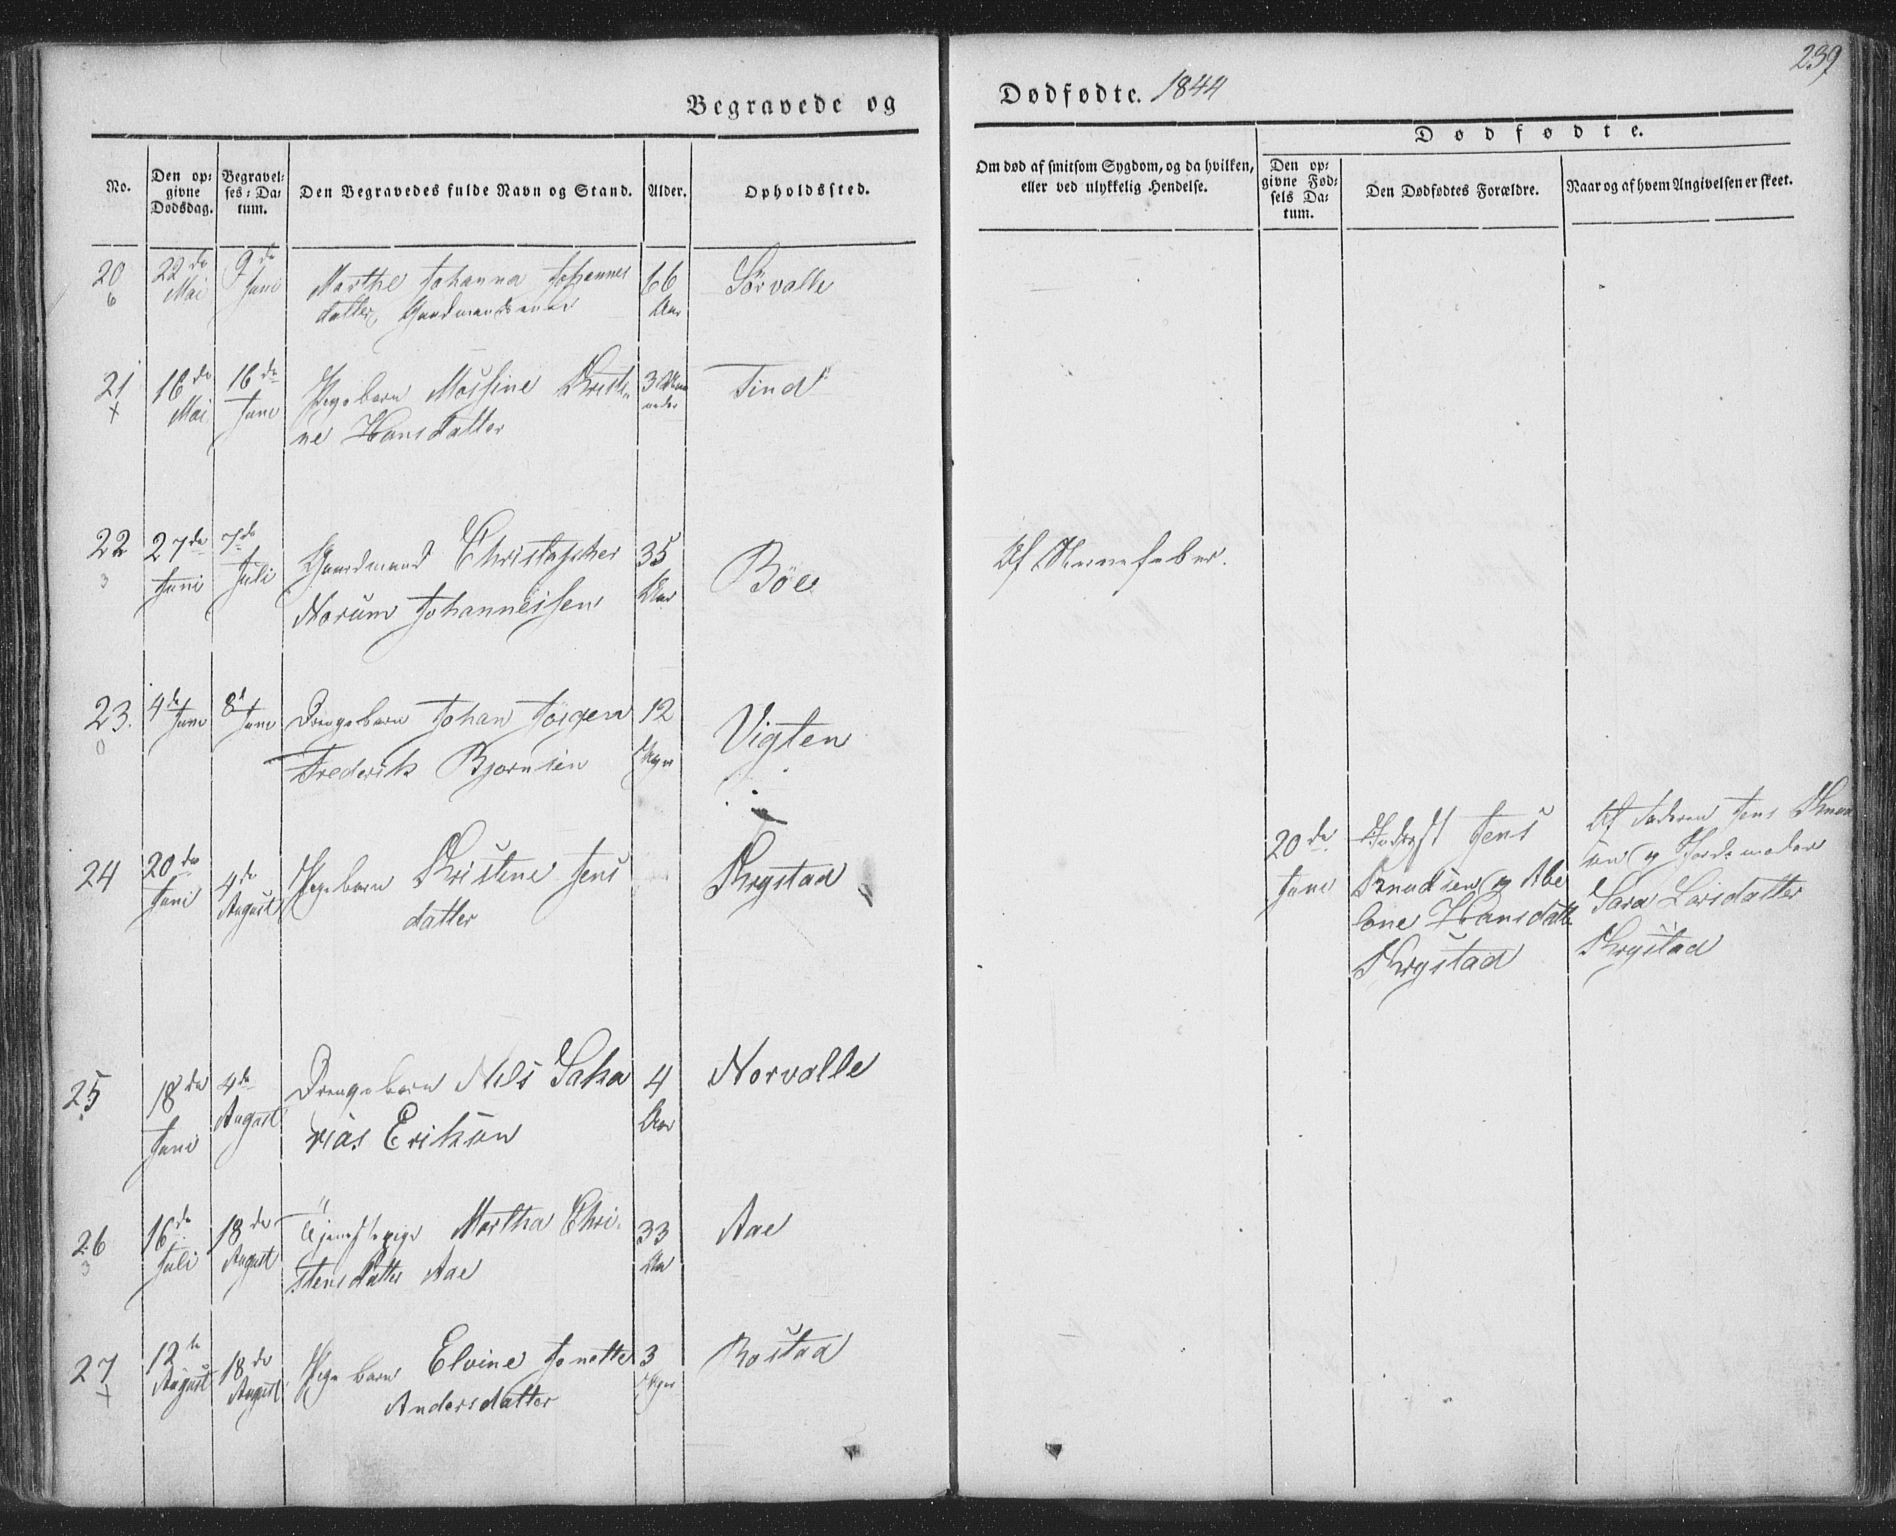 239
Begravede og Dødfødte. 1844
Dødfødte.
No.
Den opgivne Dødsdag.
Begravelses-Datum.
Den Begravedes fulde Navn og Stand.
Alder.
Opholdssted.
Om død af smitsom Sygdom, og da hvilken, eller ved ulykkelig Hendelse.
Den opgivne Fødsels Datum.
Den Dødfødtes Forældre.
Naar og af hvem Angivelsen er skeet.
20 22de 9de Marthe Johanna Johannes 66 Sörvalle
6 Mai Juni datter, Aar
21 16de 16de Pigebarn Massine Kristi 3 Tind
x Mai Juni ne Hansdatter
22 27de 7de Gaardmand Christopher 35 Böe
3 Juni Juli Norum Johannessen Aar
23. 4de Juni 8d Juni Drengebarn Johan Jörgen 12 Vigten
0 Frederik Bjornsen Uger
24 20de 4de Pigebarn Kristine Jens Krystad
Juni August datter
20de Juni
Jens
Knudsen og Abe
lone Hansdatt
Krystad
Af Faderen Jens Knud
sen og Jordemoder
Sara Larsdatter
Krystad
25 18de 4de Drengebarn Nils Saka 4 Norvalle
Juni August rias Erikson Aar
26 16de 18de Tjenestepige Martha Chri 33 Aae
3 Juli August stensdatter Aae Aar
27 12te 18de Pigebarn Elvine Jonette 3 Bostad
x August August Andersdatter Uger